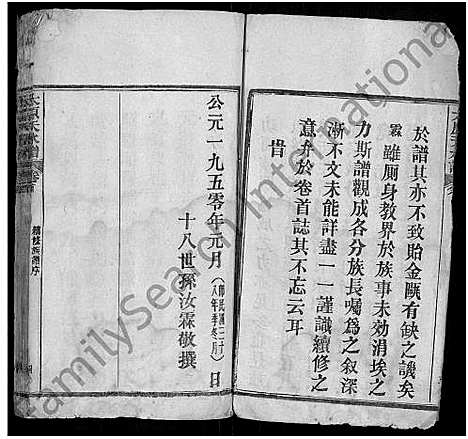 於譜其亦不致貽金甌有缺之譏矣
霖雖厠身教界於族事未効涓埃之
力斯譜觀成各分族長囑為之叙深
漸不文未能詳盡一一謹識續修之
意弁於卷首誌其不忘云耳
肯
公元一九五零年元月(即民國三十八年季冬月)日
十八世孫汝霖敬撰
續修族譜序
FamilySearch International